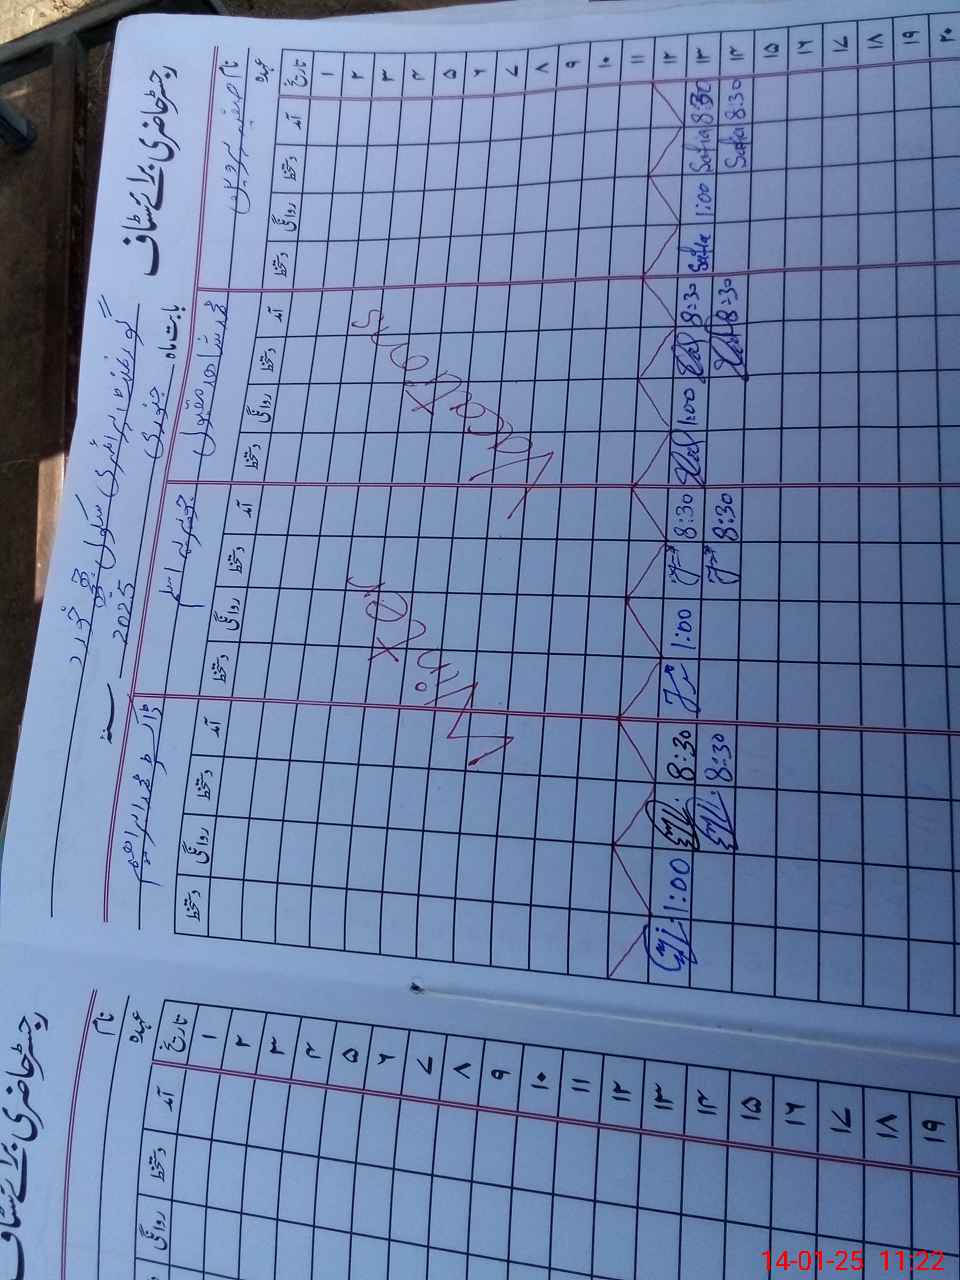 رجسٹر حاضری برائے سٹاف
گورنمنٹ پرائمری سکول
بابت ماہ جنوری سنہ 2025
نام صفیہ پروین محمد شاھد مقبول
عہدہ
تاریخ آمد دستخط روانگی دستخط آمد دستخط روانگی دستخط آمد دستخط روانگی دستخط آمد دستخط روانگی دستخط
۱
۲
۳
۴
۵
۶
۷
۸
۹
۱۰
۱۱
۱۲
۱۳ 8:30 Safia 1:00 Safia 8:30 1:00 8:30 1:00 8:30 1:00
۱۴ 8:30 Safia 8:30 8:30 8:30
۱۵
۱۶
۱۷
۱۸
۱۹
۲۰
Winter Vacations
رجسٹر حاضری برائے سٹاف
نام
عہدہ
تاریخ آمد دستخط روانگی
۱
۲
۳
۴
۵
۶
۷
۸
۹
۱۰
۱۱
۱۲
۱۳
۱۴
۱۵
۱۶
۱۷
۱۸
۱۹
14-01-25 11:22